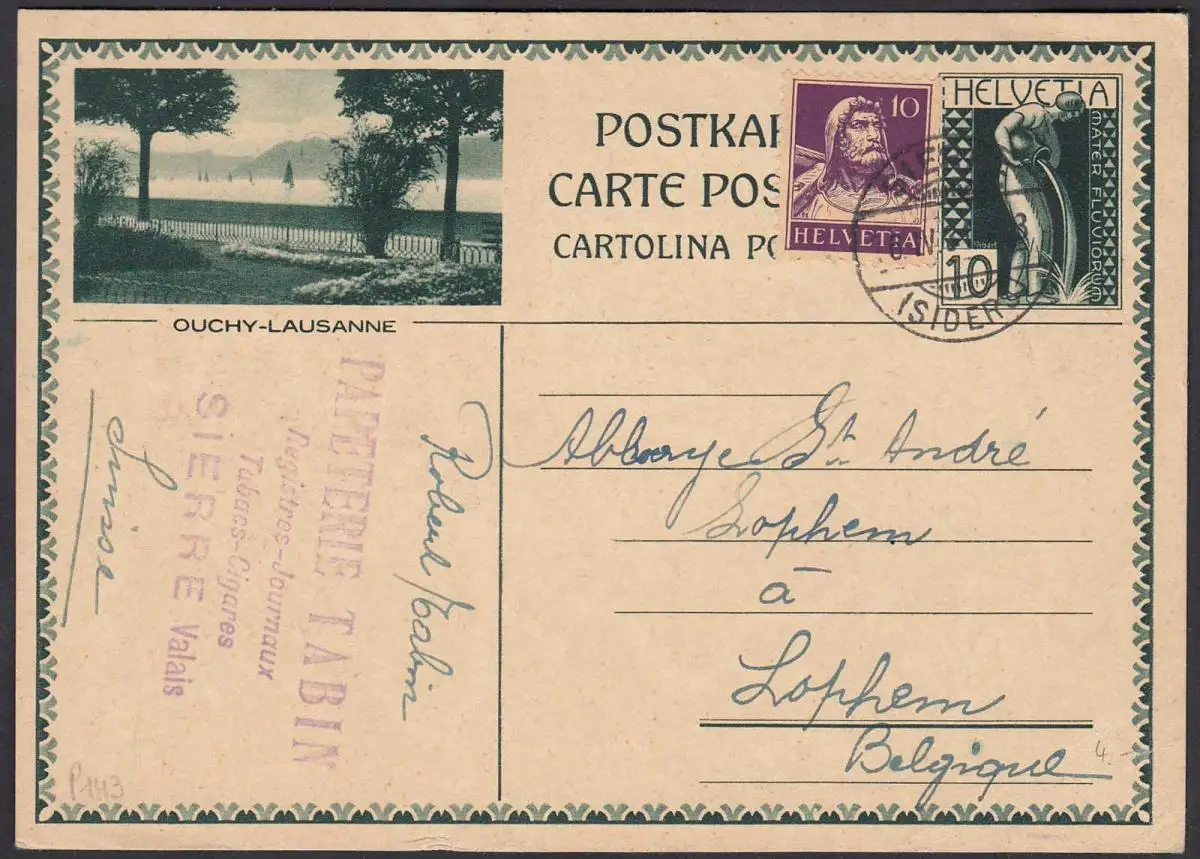 POSTKAR
CARTE POS
CARTOLINA PO
10
HELVETIA
HELVETIA
MATER FLUVIORUM
10
(SIDERS)
OUCHY-LAUSANNE
PAPETERIE TABIN
Registres-Journaux
Tabacs-Cigares
SIERRE Valais
Suisse
Robert Tabin
Abbaye St André
Lophem
à
Lophem
Belgique
4.-
P143